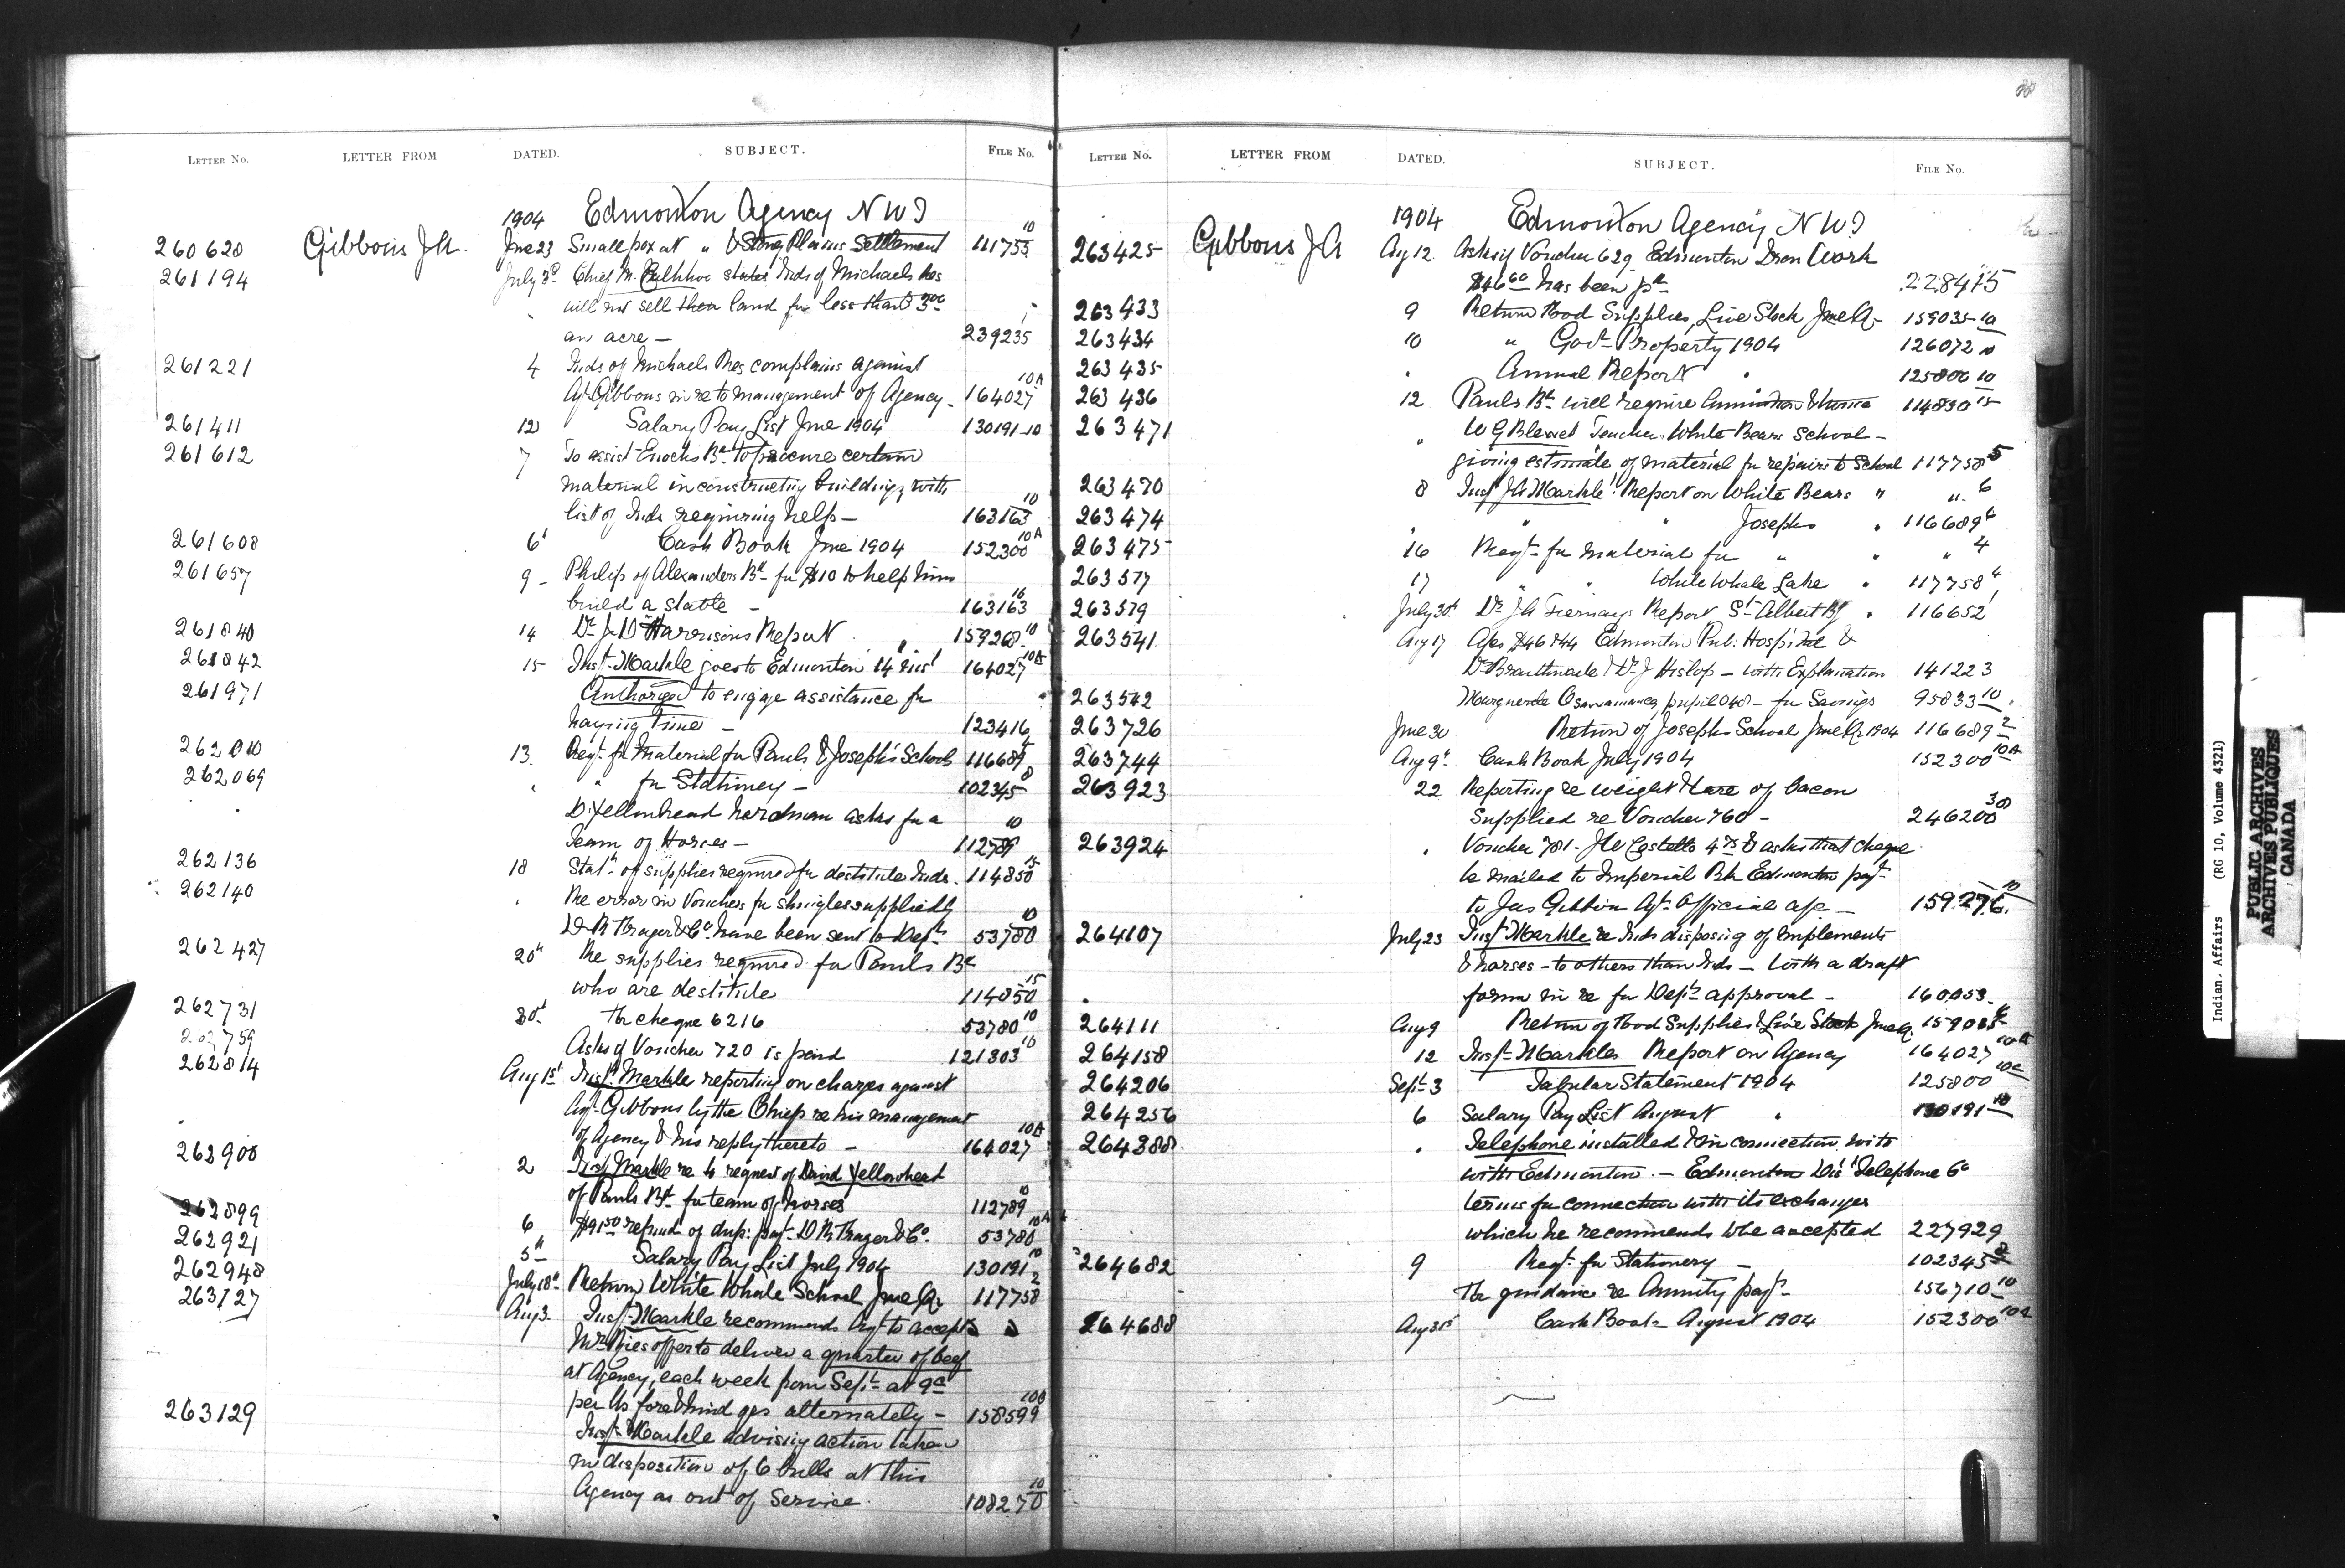 88
LETTER No. LETTER FROM DATED. SUBJECT. FILE No.
1904 Edmonton Agency N W T
260620 Gibbons J A. June 23 Smallpox at " & Stony Plains Settlement 111755 10
261194 July 3d Chief M. states Inds of Michaels Res
will not sell their land for less than
an acre — 239235
261221 4 Inds of Michaels Res complains against
Agt Gibbons in re to management of Agency - 164027 10A
261411 12 Salary Pay List June 1904 130191-10
261612 7 To assist Enochs Bd to procure certain
material in constructing buildings, with
list of Inds requiring help — 163163 10
261608 6t Cash Book June 1904 152300 10A
261657 9 - Philip of Alexanders Bd for $10 to help him
build a stable — 163163 10
261840 14 Dr J D Harrisons Report " 159268 10
261842 15 Inst. Markle goes to Edmonton 14 inst 164027 10A
261971 Authorized to engage assistance for
haying time — 123416
262010 13. Reqt. for Material for Pauls & Josephs Schools 116689
262069 " for Stationery — 102345 8
D. Yellowhead herdman asks for a
Team of Horses — 112789 10
262136 18 Statt of supplies required for destitute Inds. 114850 15
262140 Re error in Vouchers for shingles supplied by
D R Fraser & Co. have been sent to Dept 53780 10
262427 20h Re supplies required for Pauls Bd
who are destitute 114850 15
262731 30t Re cheque 6216 53780 10
Asks if Voucher 720 is paid 121803 10
262814 Aug 1st Inst. Markle reporting on charges against
Agt. Gibbons by the Chief re his management
of Agency & his reply thereto — 164027 10A
262900 2 Inst. Markle re to request of David Yellowhead
of Pauls Bd. for team of horses 112789 10
262899 6 $91.50 refund of dup: payt. D R Fraser & Co. 53780 10A
262921 5th Salary Pay List July 1904 130191 10
262948 July 18th Return White Whale School June Qr 117758 2
263127 Aug 3. Inst. Markle recommends Agt to accept
offer to deliver a quarter of beef
at Agency, each week from Sept. at 9c
per lb fore & hind qrs alternately — 158599 10B
263129 Inst. Markle advising action taken
in disposition of 6 bulls at this
Agency as out of Service. 108270 10
LETTER No. LETTER FROM DATED. SUBJECT. FILE No.
1904 Edmonton Agency, N W T
263425 Gibbons J A Aug 12. Asks if Voucher 629 Edmonton Iron Work
has been pd 228415
263433 9 Return Food Supplies, Live Stock June Qr 159035-10
263434 10 " Govt. Property 1904 126072 10
263435 " Annual Report " 125800 10
263436 12 Pauls Bd. will require Ammunition & twine 114850 15
263471 " W G Blewet Teacher White Bears School —
giving estimate of material for repairs to School 117758 5
263470 8 Inst J A Markle Report on White Bears " " 6
263474 " " " Josephs " 116689 6
263475 16 Reqt. for Material for " " " 4
263517 17 " " White Whale Lake " 117758 4
263519 July 30th Dr J A Tiernays Report St. Albert Bg " 116652 1
263541 Aug 17 Edmonton Pub: Hospital &
Dr Braithwaite & Dr J Hislop — with Explanation 141223
263542 Marguerite pupil 048 — for Savings 95833 10
263726 June 30 Return of Josephs School June Qr 1904 116689 2
263744 Aug 9t Cash Book July 1904 152300 10A
263923 22 Reporting re weight & tare of bacon
supplied re Voucher 760 — 246200 30
263924 " Voucher 781 - J W Costello & asks that cheque
be mailed to Imperial Bk Edmonton payt
to Jas Gibbons Agt. Official a/c — 159276 10
264107 July 23 Inst Markle re Inds disposing of implements
& horses — to others than Inds — with a draft
form in re for Dept. approval — 160,053
264111 Aug 9 Return of Food Supplies & Live Stock June Qr. 159035
264158 12 Inst. Markles Report on Agency 164027 10A
264206 Sept. 3 Tabular Statement 1904 125800
264256 6 Salary Pay List August " 130191 10
264388 " Telephone installed & in connection with
with Edmonton. — Edmonton Dist Telephone Co
terms for connection with its exchanges
which he recommends to be accepted 227929
264682 9 Reqt. for Stationery — 102345 8
For guidance re Annuity payt. 156710 10
264688 Aug 31st Cash Book August 1904 152300 10A
Indian Affairs (RG 10, Volume 4321)
PUBLIC ARCHIVES
ARCHIVES PUBLIQUES
CANADA